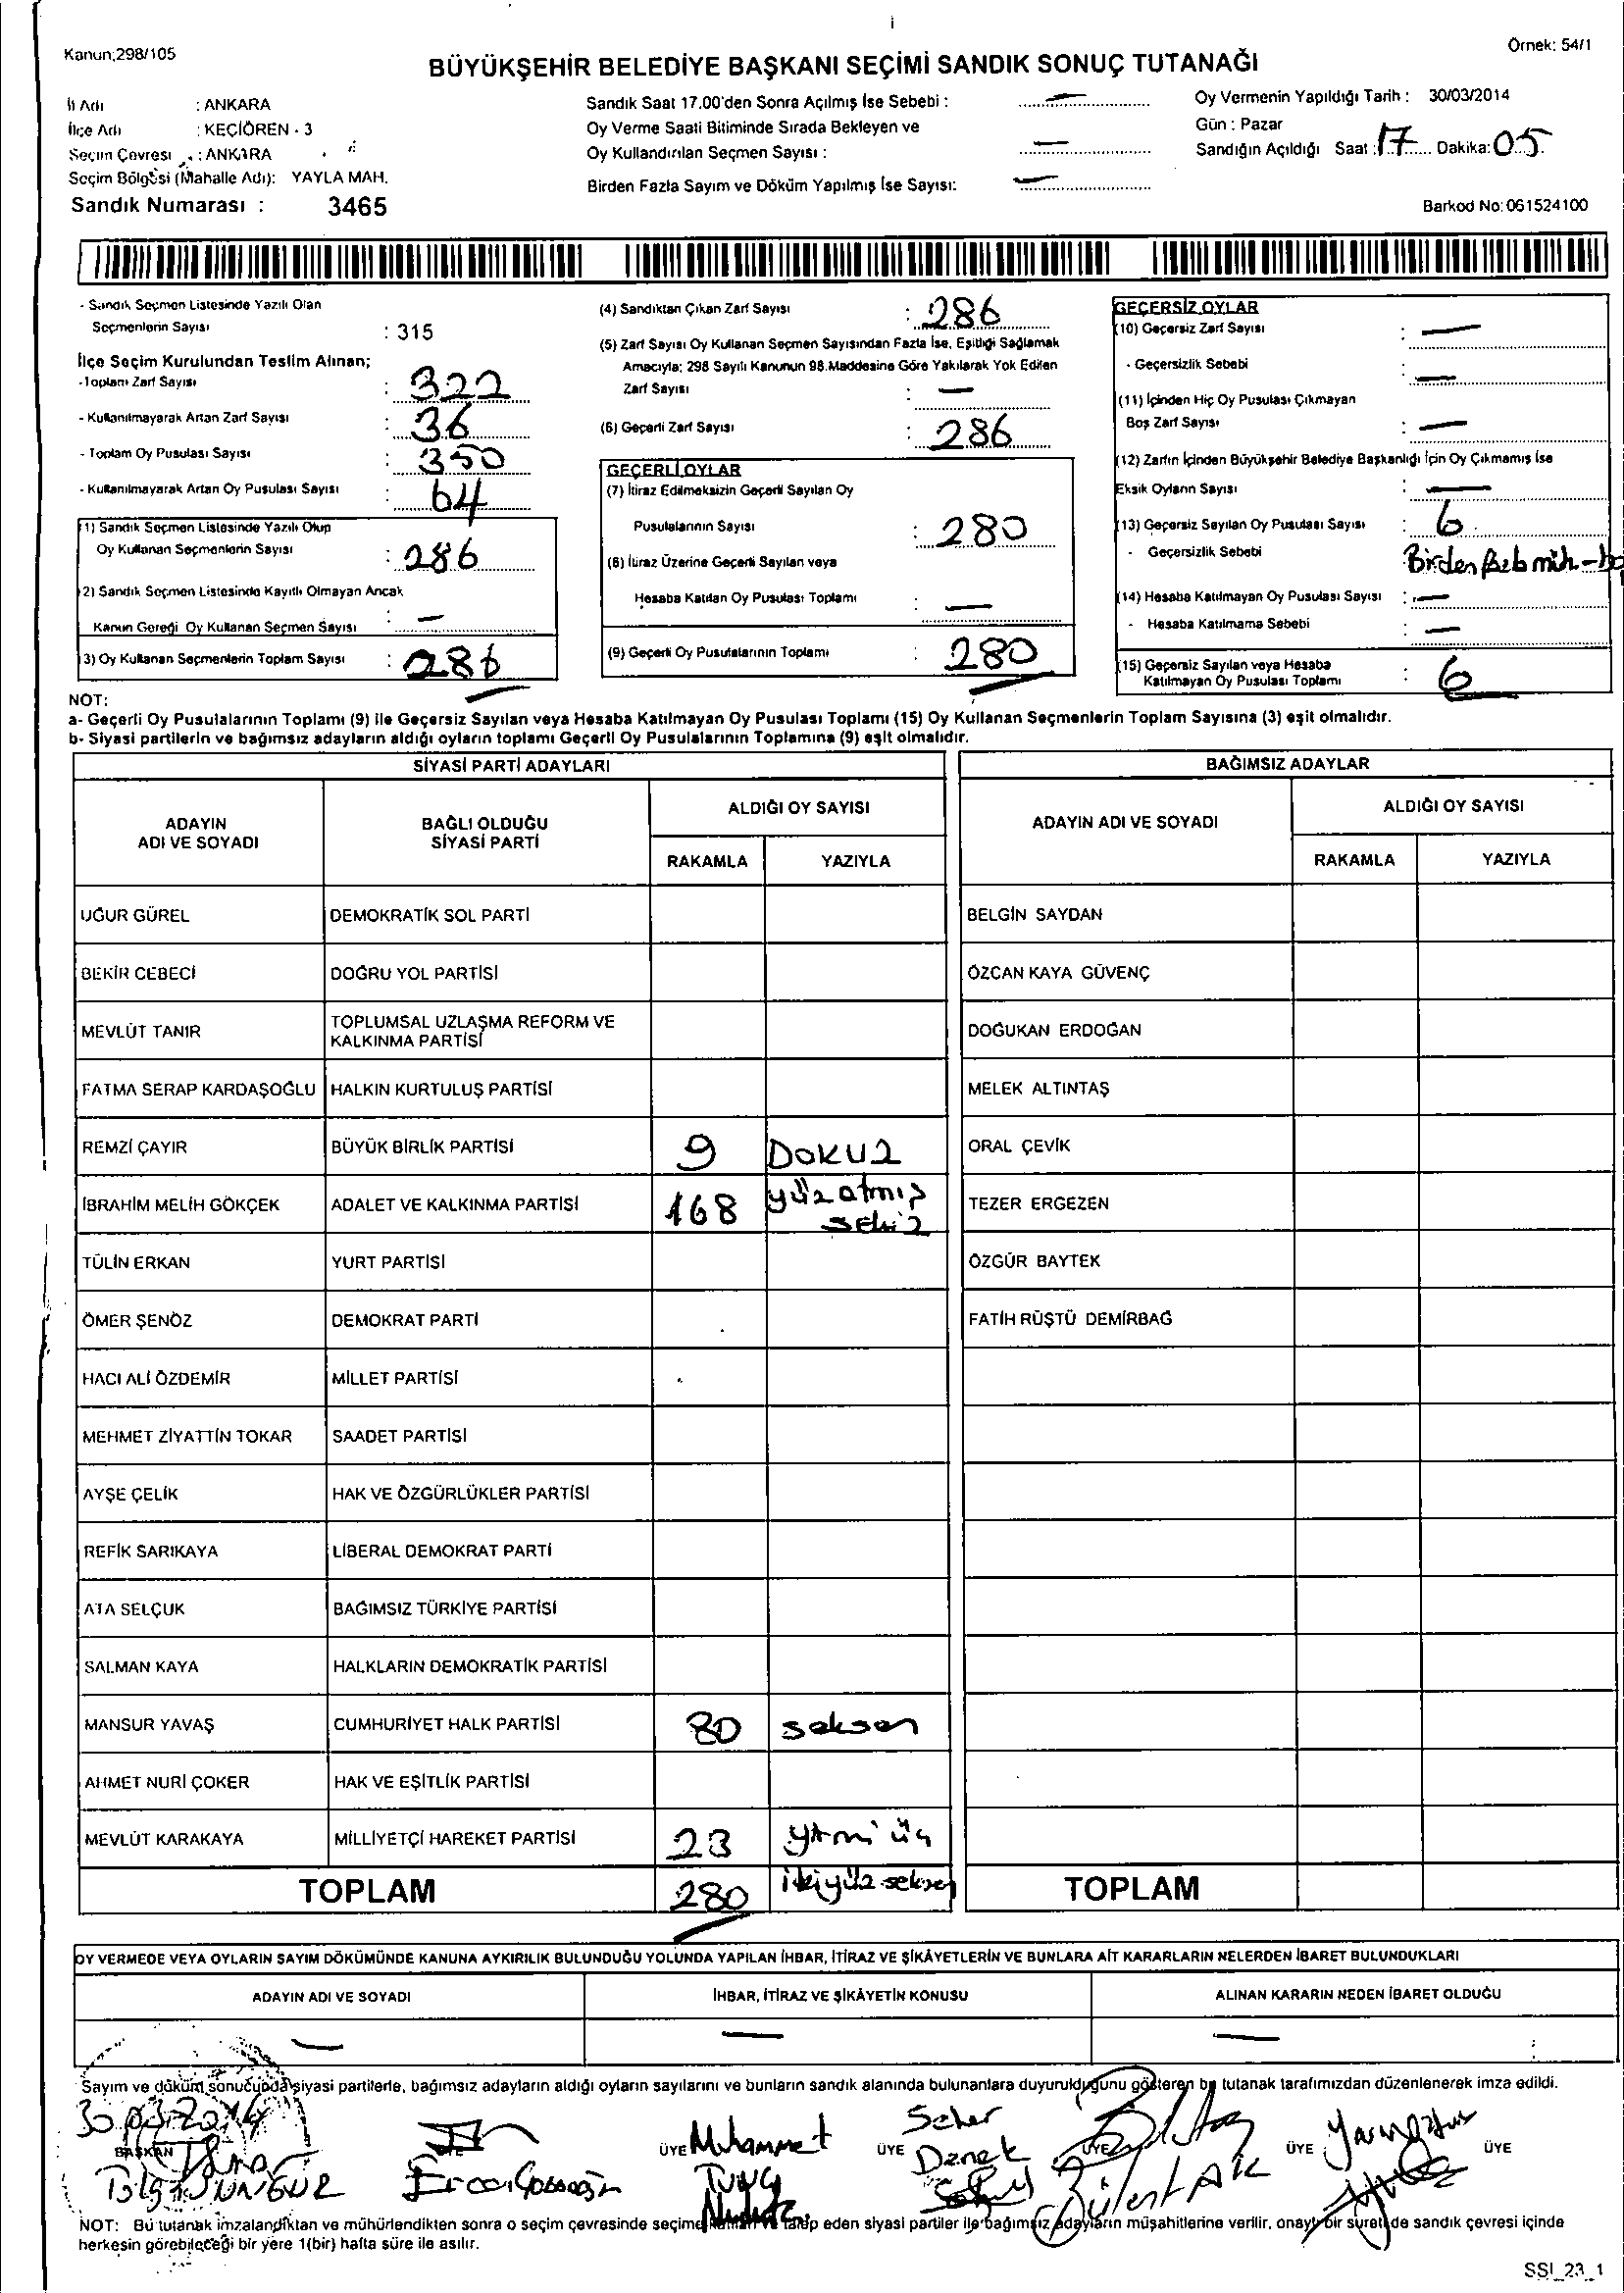 Kanun;298/105
Örnek: 54/1
BÜYÜKŞEHİR BELEDİYE BAŞKANI SEÇİMİ SANDIK SONUÇ TUTANAĞI
İl Adı : ANKARA
İlçe Adı : KEÇİÖREN - 3
Seçim Çevresi : ANKARA
Seçim Bölgesi (Mahalle Adı): YAYLA MAH.
Sandık Numarası : 3465
Sandık Saat 17.00'den Sonra Açılmış İse Sebebi : —
Oy Verme Saati Bitiminde Sırada Bekleyen ve
Oy Kullandırılan Seçmen Sayısı : —
Birden Fazla Sayım ve Döküm Yapılmış İse Sayısı: —
Oy Vermenin Yapıldığı Tarih : 30/03/2014
Gün : Pazar
Sandığın Açıldığı Saat : 17 Dakika: 05
Barkod No: 061524100
- Sandık Seçmen Listesinde Yazılı Olan
Seçmenlerin Sayısı : 315
İlçe Seçim Kurulundan Teslim Alınan;
-Toplam Zarf Sayısı : 322
- Kullanılmayarak Artan Zarf Sayısı : 36
- Toplam Oy Pusulası Sayısı : 350
- Kullanılmayarak Artan Oy Pusulası Sayısı : 64
1) Sandık Seçmen Listesinde Yazılı Olup
Oy Kullanan Seçmenlerin Sayısı : 286
2) Sandık Seçmen Listesinde Kayıtlı Olmayan Ancak
Kanun Gereği Oy Kullanan Seçmen Sayısı : —
3) Oy Kullanan Seçmenlerin Toplam Sayısı : 286
(4) Sandıktan Çıkan Zarf Sayısı : 286
(5) Zarf Sayısı Oy Kullanan Seçmen Sayısından Fazla İse, Eşitliği Sağlamak
Amacıyla; 298 Sayılı Kanunun 98.Maddesine Göre Yakılarak Yok Edilen
Zarf Sayısı : —
(6) Geçerli Zarf Sayısı : 286
GEÇERLİ OYLAR
(7) İtiraz Edilmeksizin Geçerli Sayılan Oy
Pusulalarının Sayısı : 280
(8) İtiraz Üzerine Geçerli Sayılan veya
Hesaba Katılan Oy Pusulası Toplamı : —
(9) Geçerli Oy Pusulalarının Toplamı : 280
GEÇERSİZ OYLAR
(10) Geçersiz Zarf Sayısı : —
- Geçersizlik Sebebi : —
(11) İçinden Hiç Oy Pusulası Çıkmayan
Boş Zarf Sayısı : —
(12) Zarfın İçinden Büyükşehir Belediye Başkanlığı İçin Oy Çıkmamış İse
Eksik Oyların Sayısı : —
(13) Geçersiz Sayılan Oy Pusulası Sayısı : 6
- Geçersizlik Sebebi Birden
(14) Hesaba Katılmayan Oy Pusulası Sayısı : —
- Hesaba Katılmama Sebebi : —
(15) Geçersiz Sayılan veya Hesaba
Katılmayan Oy Pusulası Toplamı : 6
NOT:
a- Geçerli Oy Pusulalarının Toplamı (9) ile Geçersiz Sayılan veya Hesaba Katılmayan Oy Pusulası Toplamı (15) Oy Kullanan Seçmenlerin Toplam Sayısına (3) eşit olmalıdır.
b- Siyasi partilerin ve bağımsız adayların aldığı oyların toplamı Geçerli Oy Pusulalarının Toplamına (9) eşit olmalıdır.
SİYASİ PARTİ ADAYLARI
ADAYIN
ADI VE SOYADI
BAĞLI OLDUĞU
SİYASİ PARTİ
ALDIĞI OY SAYISI
RAKAMLA YAZIYLA
UĞUR GÜREL DEMOKRATİK SOL PARTİ
BEKİR CEBECİ DOĞRU YOL PARTİSİ
MEVLÜT TANIR TOPLUMSAL UZLAŞMA REFORM VE
KALKINMA PARTİSİ
FATMA SERAP KARDAŞOĞLU HALKIN KURTULUŞ PARTİSİ
REMZİ ÇAYIR BÜYÜK BİRLİK PARTİSİ 9 DOKUZ
İBRAHİM MELİH GÖKÇEK ADALET VE KALKINMA PARTİSİ 168 yüz atmış
sekiz
TÜLİN ERKAN YURT PARTİSİ
ÖMER ŞENÖZ DEMOKRAT PARTİ
HACI ALİ ÖZDEMİR MİLLET PARTİSİ
MEHMET ZİYATTİN TOKAR SAADET PARTİSİ
AYŞE ÇELİK HAK VE ÖZGÜRLÜKLER PARTİSİ
REFİK SARIKAYA LİBERAL DEMOKRAT PARTİ
ATA SELÇUK BAĞIMSIZ TÜRKİYE PARTİSİ
SALMAN KAYA HALKLARIN DEMOKRATİK PARTİSİ
MANSUR YAVAŞ CUMHURİYET HALK PARTİSİ 80 seksen
AHMET NURİ ÇOKER HAK VE EŞİTLİK PARTİSİ
MEVLÜT KARAKAYA MİLLİYETÇİ HAREKET PARTİSİ 23 yirmi üç
TOPLAM 280 ikiyüz seksen
BAĞIMSIZ ADAYLAR
ADAYIN ADI VE SOYADI
ALDIĞI OY SAYISI
RAKAMLA YAZIYLA
BELGİN SAYDAN
ÖZCAN KAYA GÜVENÇ
DOĞUKAN ERDOĞAN
MELEK ALTINTAŞ
ORAL ÇEVİK
TEZER ERGEZEN
ÖZGÜR BAYTEK
FATİH RÜŞTÜ DEMİRBAĞ
TOPLAM
OY VERMEDE VEYA OYLARIN SAYIM DÖKÜMÜNDE KANUNA AYKIRILIK BULUNDUĞU YOLUNDA YAPILAN İHBAR, İTİRAZ VE ŞİKÂYETLERİN VE BUNLARA AİT KARARLARIN NELERDEN İBARET BULUNDUKLARI
ADAYIN ADI VE SOYADI İHBAR, İTİRAZ VE ŞİKÂYETİN KONUSU ALINAN KARARIN NEDEN İBARET OLDUĞU
— — —
Sayım ve döküm sonucunda siyasi partilerle, bağımsız adayların aldığı oyların sayılarını ve bunların sandık alanında bulunanlara duyurulduğunu gösteren bu tutanak tarafımızdan düzenlenerek imza edildi.
30.03.2014
BAŞKAN ÜYE Muhammet ÜYE Seher ÜYE ÜYE ÜYE
Tolga TUNÇ Bülent AK
NOT: Bu tutanak imzalandıktan ve mühürlendikten sonra o seçim çevresinde seçime katılan ve talep eden siyasi partiler ile bağımsız adayların müşahitlerine verilir, onaylı bir sureti de sandık çevresi içinde
herkesin görebileceği bir yere 1(bir) hafta süre ile asılır.
SSI_23_1